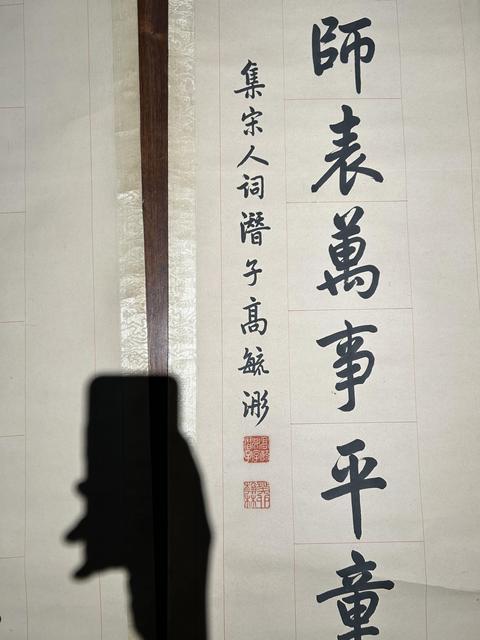 師表萬事平章
集宋人詞潛子高毓浵